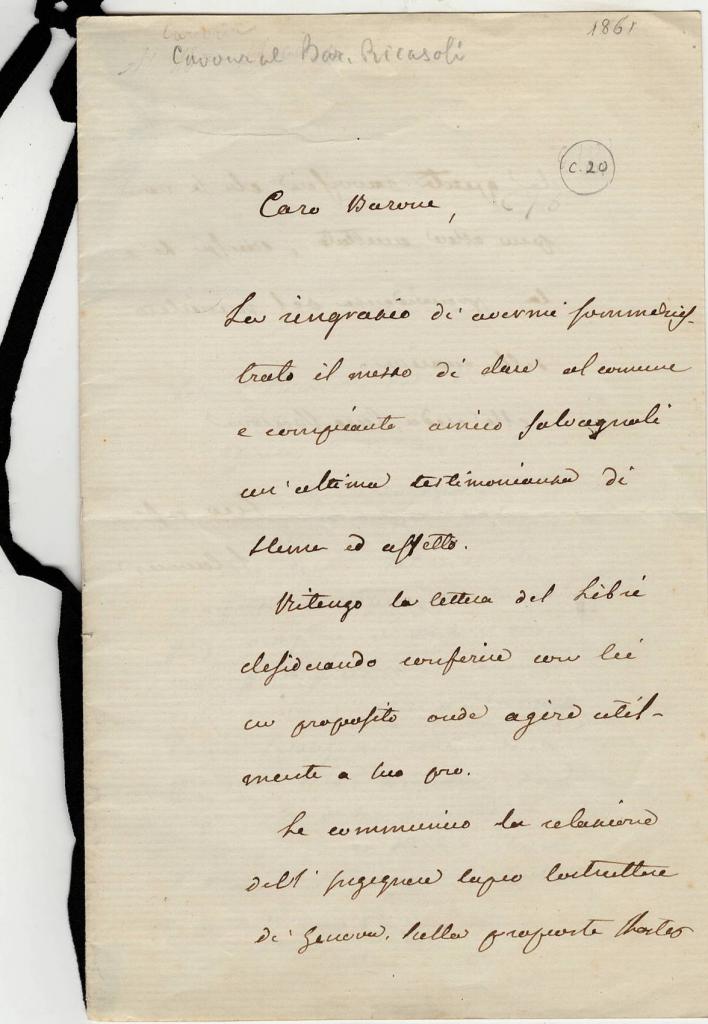 1861
Cavour al Bar. Ricasoli
C. 20
Caro Barone,
La ringrazio di avermi sommenis-
trato il mezzo di dare al comune
e compianto amico Salvagnoli
un' ultima testimonianza di
stima ed affetto.
Ritengo la lettera del Libri
desiderando conferire con lei
in proposito onde agire util-
mente a suo pro.
Le communico la relazione
dell' Ingegnere capo costruttore
di Genova, sulla proposta